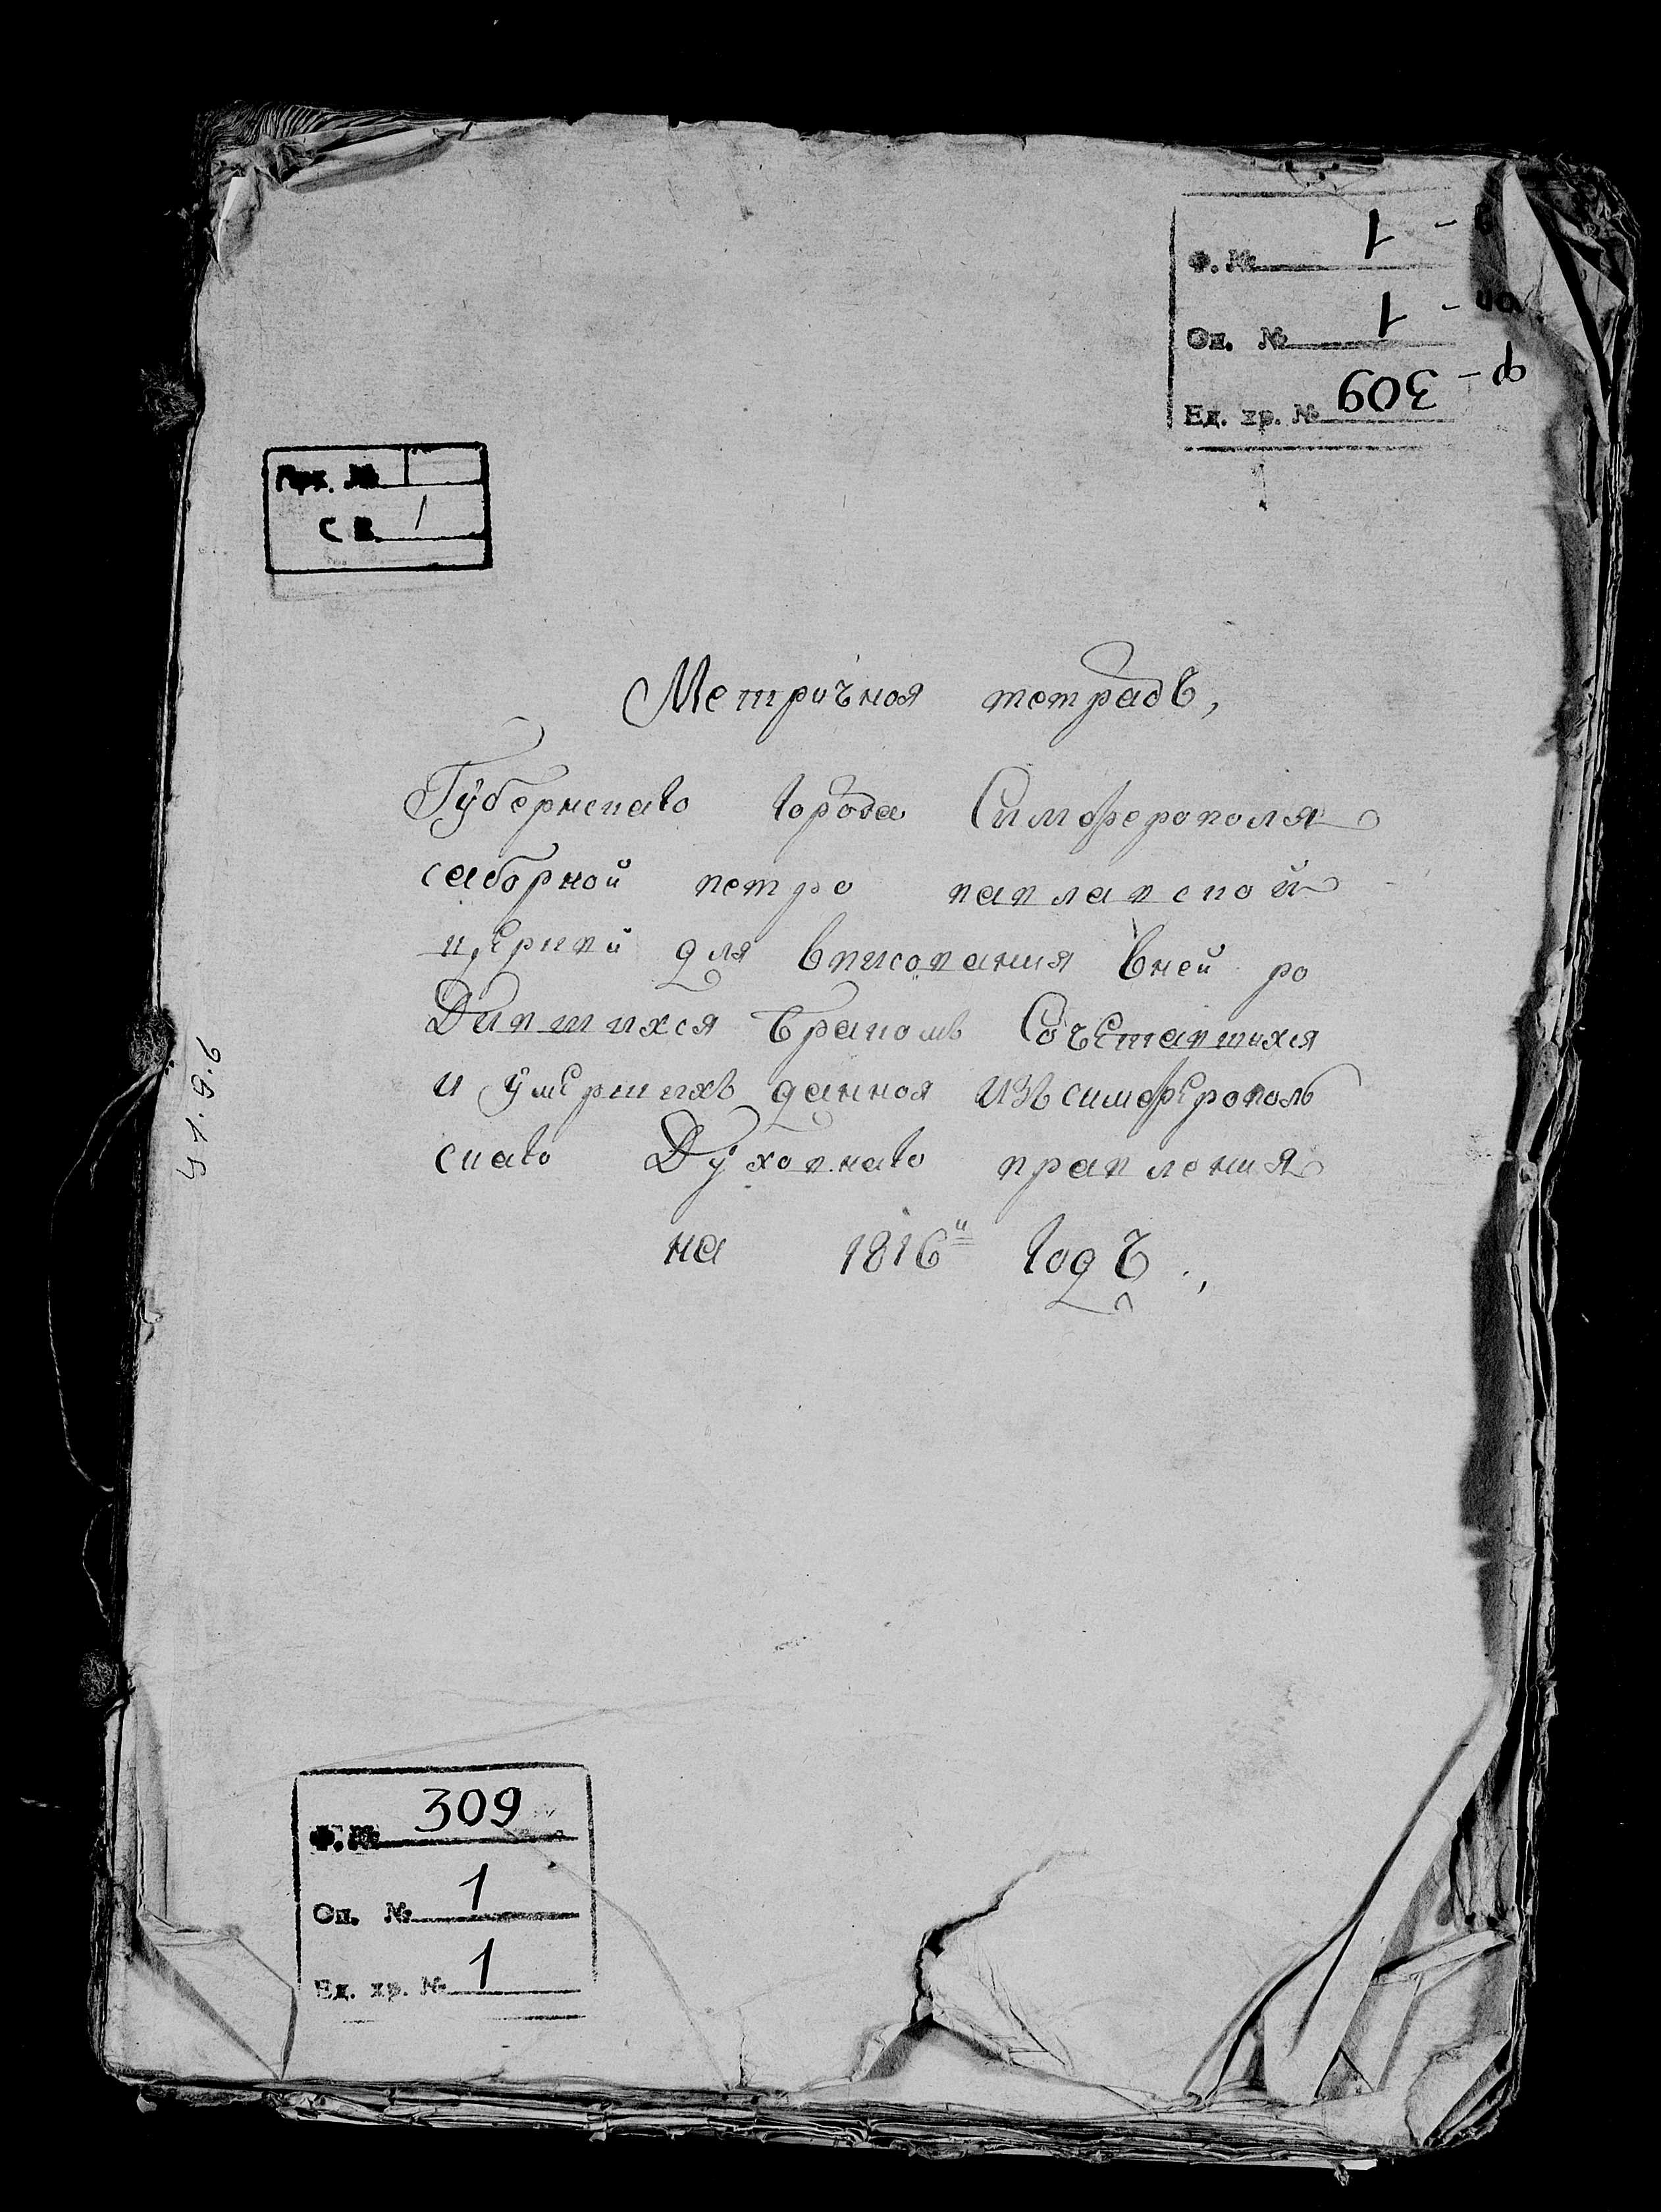 Ф. № 1
Оп. № 1
Ед. хр. № 309
Арх. №
СВ. 1
Метричная тетрадь,
Губернскаго города Симферополя
саборной петро павлавской
церкви для вписования вней ро
дившихся бракомъ Сочетавшихся
и умершихъ данная изъ симферополь
скаго Духовнаго правления
на 1816й годъ.,
Ф. № 309
Оп. № 1
Ед. хр. № 1